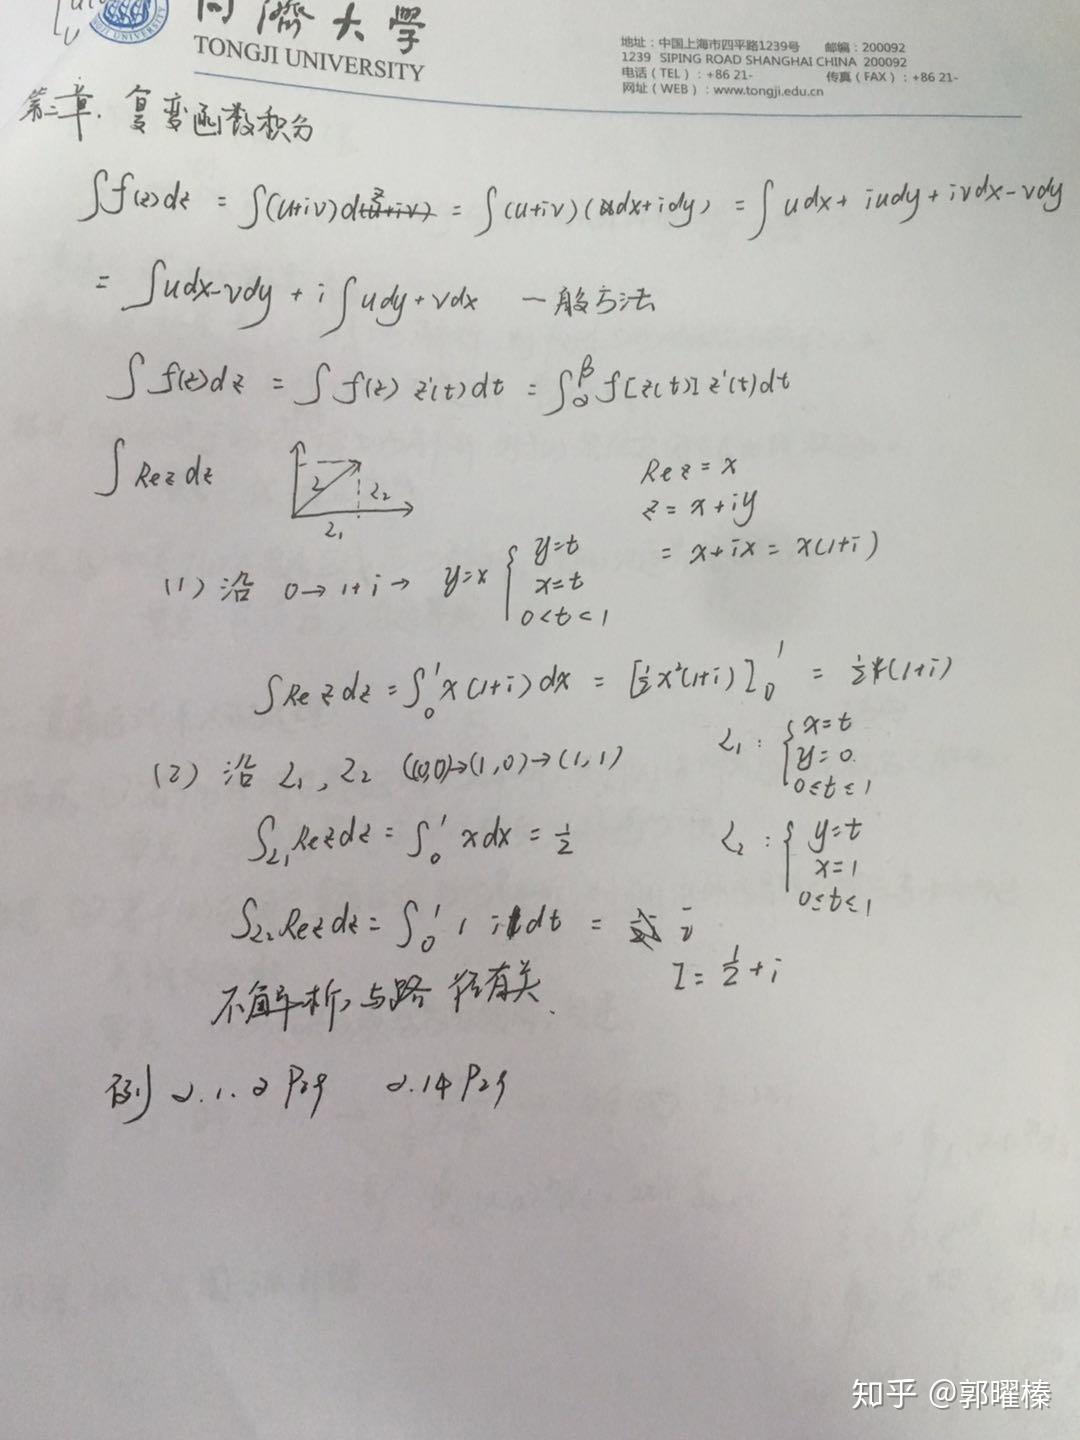 同济大学
TONGJI UNIVERSITY
地址：中国上海市四平路1239号 邮编：200092
1239 SIPING ROAD SHANGHAI CHINA 200092
电话（TEL）：+86 21- 传真（FAX）：+86 21-
网址（WEB）：www.tongji.edu.cn
第二章. 复变函数积分
∫f(z)dz = ∫(u+iv)dz = ∫(u+iv)(dx+idy) = ∫udx+iudy+ivdx-vdy
= ∫udx-vdy + i∫udy+vdx 一般方法
∫f(z)dz = ∫f(z) z'(t)dt = ∫_α^β f[z(t)] z'(t)dt
∫Rez dz
L L₂
L₁
Re z = x
z = x+iy
= x+ix = x(1+i)
(1) 沿 0→1+i→ y=x { y=t
x=t
0<t<1
∫Rezdz = ∫₀¹x(1+i)dx = [½x²(1+i)]₀¹ = ½(1+i)
(2) 沿 L₁, L₂ (0,0)→(1,0)→(1,1)
L₁: { x=t
y=0.
0≤t≤1
∫L₁Rezdz = ∫₀¹ xdx = ½
L₂: { y=t
x=1
0≤t≤1
∫L₂Rezdz = ∫₀¹ 1 i dt = i
I = ½+i
不解析, 与路径有关.
例 2.1.2 P29 2.14 P29
知乎 @郭曜榛